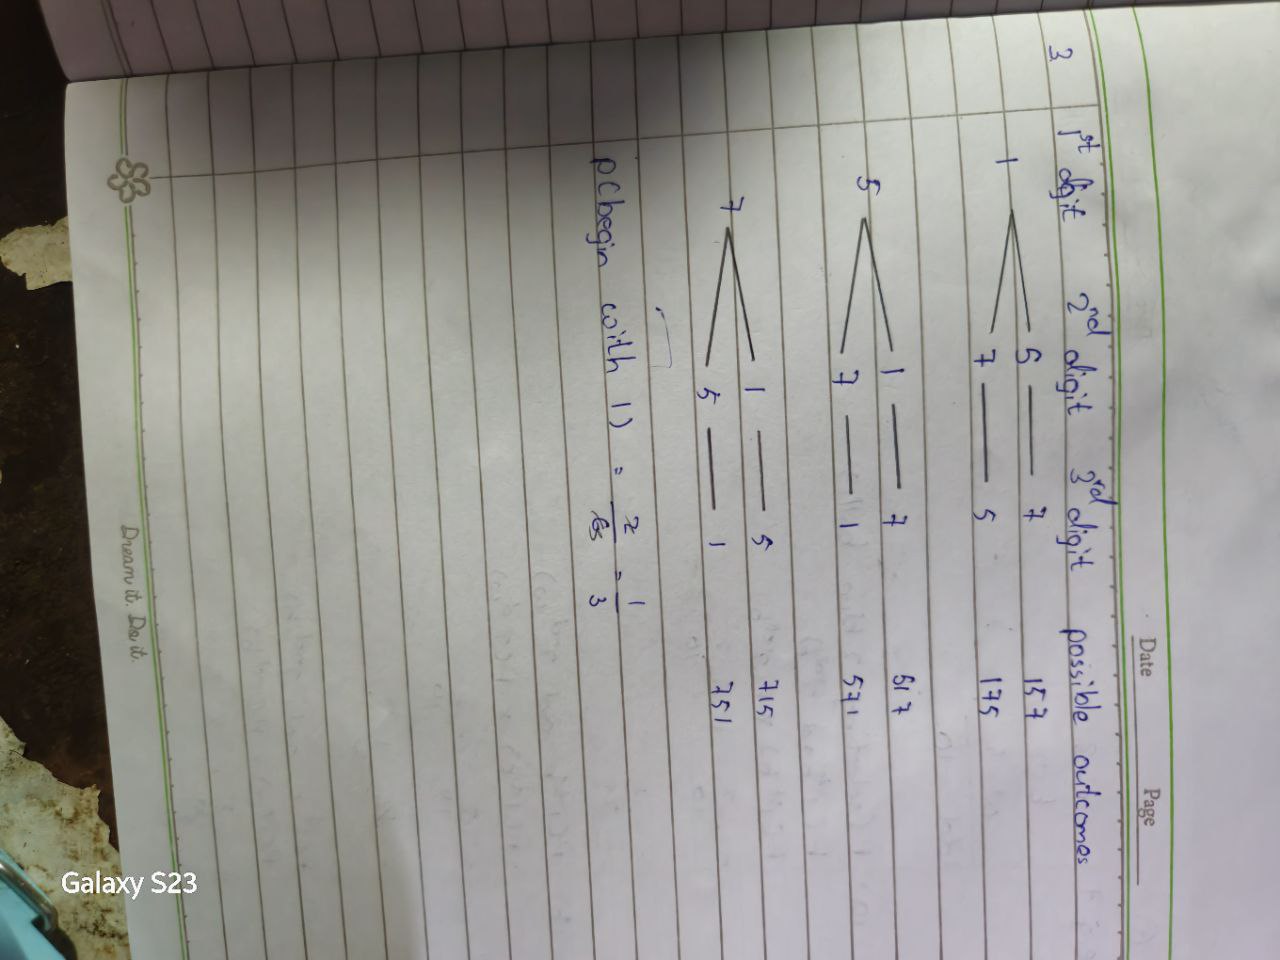 Date
Page
3 1st digit 2nd digit 3rd digit possible outcomes
5 7 157
1
7 5 175
1 7 517
5
7 1 571
1 5 715
7
5 1 751
P(begin with 1) = 2/6 = 1/3
Dream it. Do it.
Galaxy S23